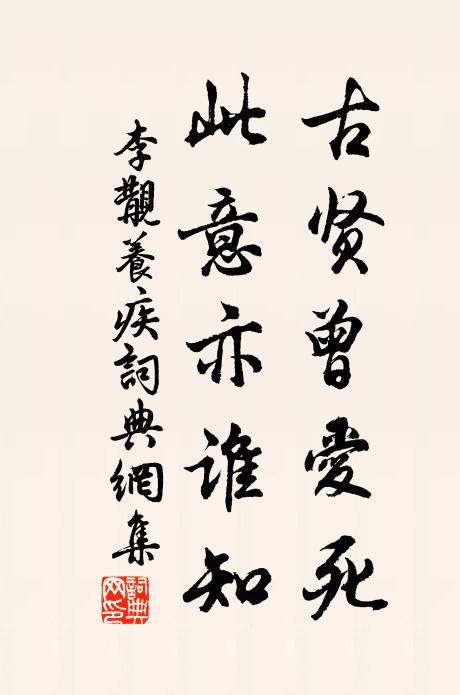 古贤曾愛死
此意亦谁知
李覯養疾詞典網集
詞典网印